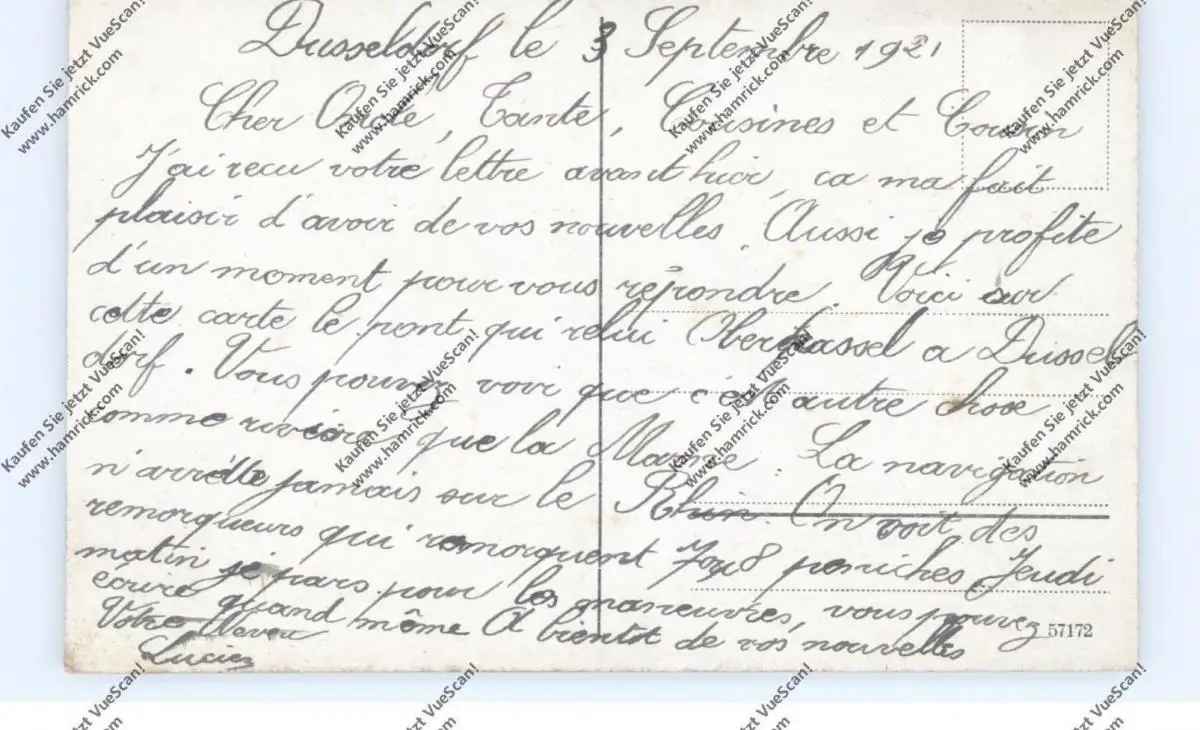 Dusseldorf le 3 Septembre 1921
Cher Oncle, Tante, Cousines et Cousin
J'ai recu votre lettre avant hier, ca ma fait
plaisir d'avoir de vos nouvelles. Aussi je profite
d'un moment pour vous répondre. Voici sur
cette carte le pont qui relui Oberkassel a Dussel
dorf. Vous pouvez voir que c'est autre chose
comme rivière que la Marne. La navigation
n'arrête jamais sur le Rhin. On voit des
remorqueurs qui remorquent 7 ou 8 peniches. Jeudi
matin je pars pour les manœuvres, vous pouvez
écrire quand même A bientot de vos nouvelles
Votre Neveu
Lucien
57172
Kaufen Sie jetzt VueScan!
www.hamrick.com